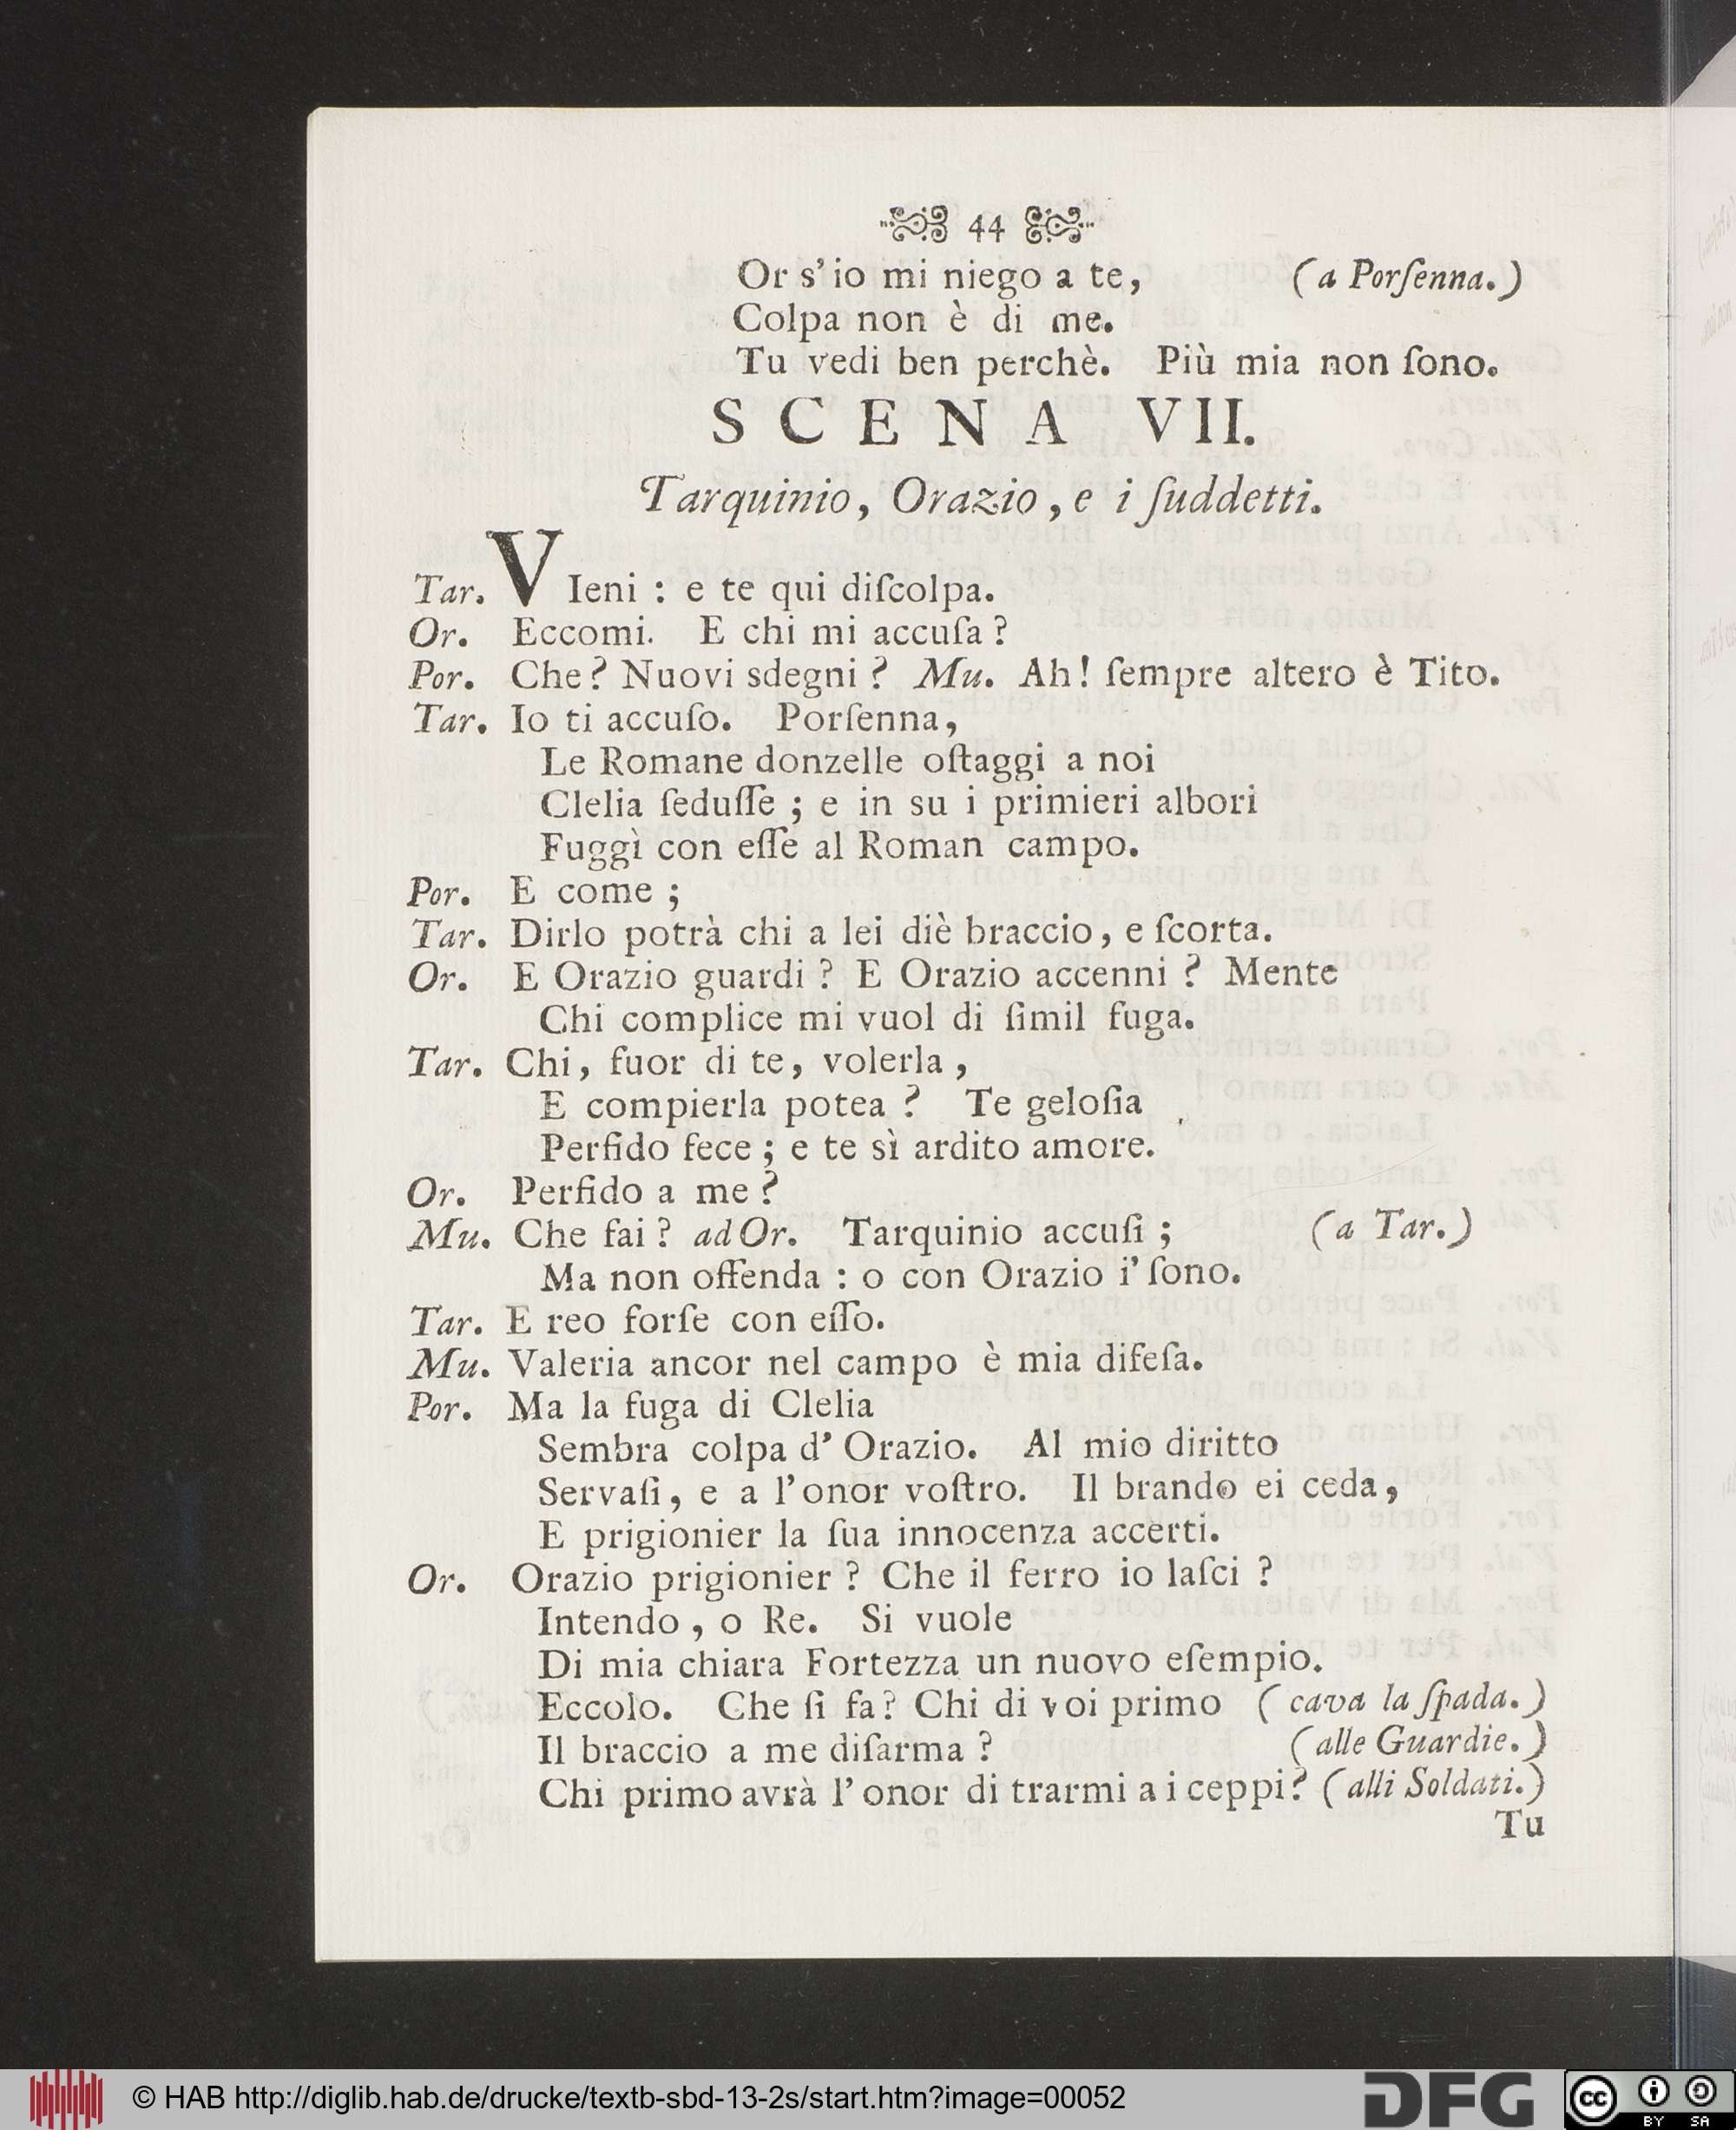 44
Or s'io mi niego a te, (a Porſenna.)
Colpa non è di me.
Tu vedi ben perchè. Più mia non ſono.
SCENA VII.
Tarquinio, Orazio, e i ſuddetti.
Tar. VIeni : e te qui diſcolpa.
Or. Eccomi. E chi mi accuſa?
Por. Che? Nuovi sdegni? Mu. Ah! ſempre altero è Tito.
Tar. Io ti accuſo. Porſenna,
Le Romane donzelle oſtaggi a noi
Clelia ſeduſſe ; e in su i primieri albori
Fuggì con eſſe al Roman campo.
Por. E come ;
Tar. Dirlo potrà chi a lei diè braccio, e ſcorta.
Or. E Orazio guardi? E Orazio accenni? Mente
Chi complice mi vuol di ſimil fuga.
Tar. Chi, fuor di te, volerla,
E compierla potea? Te geloſia
Perfido fece ; e te sì ardito amore.
Or. Perfido a me?
Mu. Che fai? ad Or. Tarquinio accuſi ; (a Tar.)
Ma non offenda : o con Orazio i' ſono.
Tar. E reo forſe con eſſo.
Mu. Valeria ancor nel campo è mia difeſa.
Por. Ma la fuga di Clelia
Sembra colpa d' Orazio. Al mio diritto
Servaſi, e a l'onor voſtro. Il brando ei ceda,
E prigionier la ſua innocenza accerti.
Or. Orazio prigionier? Che il ferro io laſci?
Intendo, o Re. Si vuole
Di mia chiara Fortezza un nuovo eſempio.
Eccolo. Che ſi fa? Chi di voi primo (cava la ſpada.)
Il braccio a me diſarma? (alle Guardie.)
Chi primo avrà l' onor di trarmi a i ceppi? (alli Soldati.)
Tu
© HAB http://diglib.hab.de/drucke/textb-sbd-13-2s/start.htm?image=00052
DFG
cc BY SA